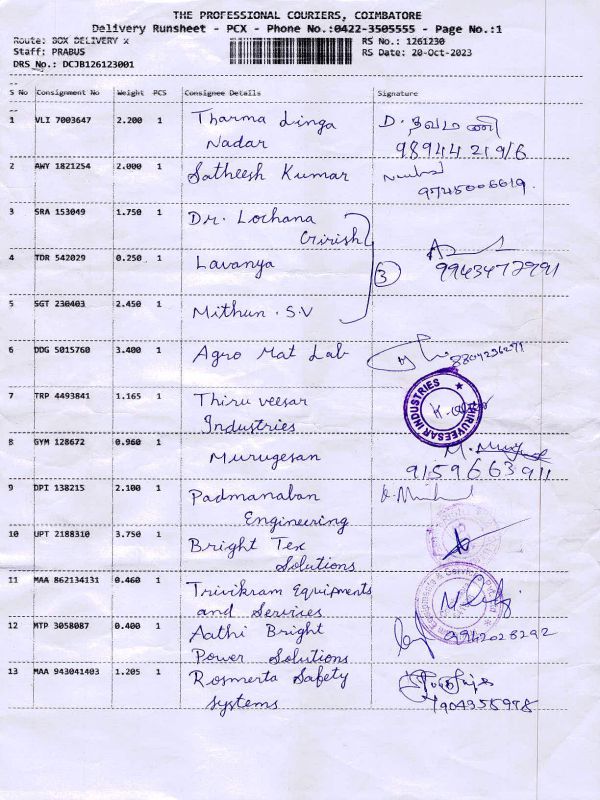 THE PROFESSIONAL COURIERS, COIMBATORE
Delivery Runsheet - PCX - Phone No.:0422-3505555 - Page No.:1
Route: BOX DELIVERY x
RS No.: 1261230
Staff: PRABUS
RS Date: 20-Oct-2023
DRS No.: DCJB126123001
S No Consignment No Weight PCS Consignee Details Signature
1 VLI 7003647 2.200 1 Tharma Linga D. தவமணி
Nadar 98944 21916
2 AWY 1821254 2.000 1 Satheesh Kumar
9745006619.
3 SRA 153049 1.750 1 Dr. Lochana
Girish
4 TDR 542029 0.250 1 Lavanya 3 99434 72991
5 SGT 230403 2.450 1 Mithun . S.V
6 DDG 5015760 3.400 1 Agro Mat Lab 8804236271
7 TRP 4493841 1.165 1 Thiru veesar THIRUVEESAR INDUSTRIES
Industries
8 GYM 128672 0.960 1 Murugesan M.
9159663911
9 DPI 138215 2.100 1 Padmanaban
Engineering
10 UPT 2188310 3.750 1 Bright Tex
Solutions
11 MAA 862134131 0.460 1 Trivikram Equipments
and Services
12 MTP 3058087 0.400 1 Aathi Bright 9942025292
Power Solutions
13 MAA 943041403 1.205 1 Rosmerta Safety
systems 7904355978